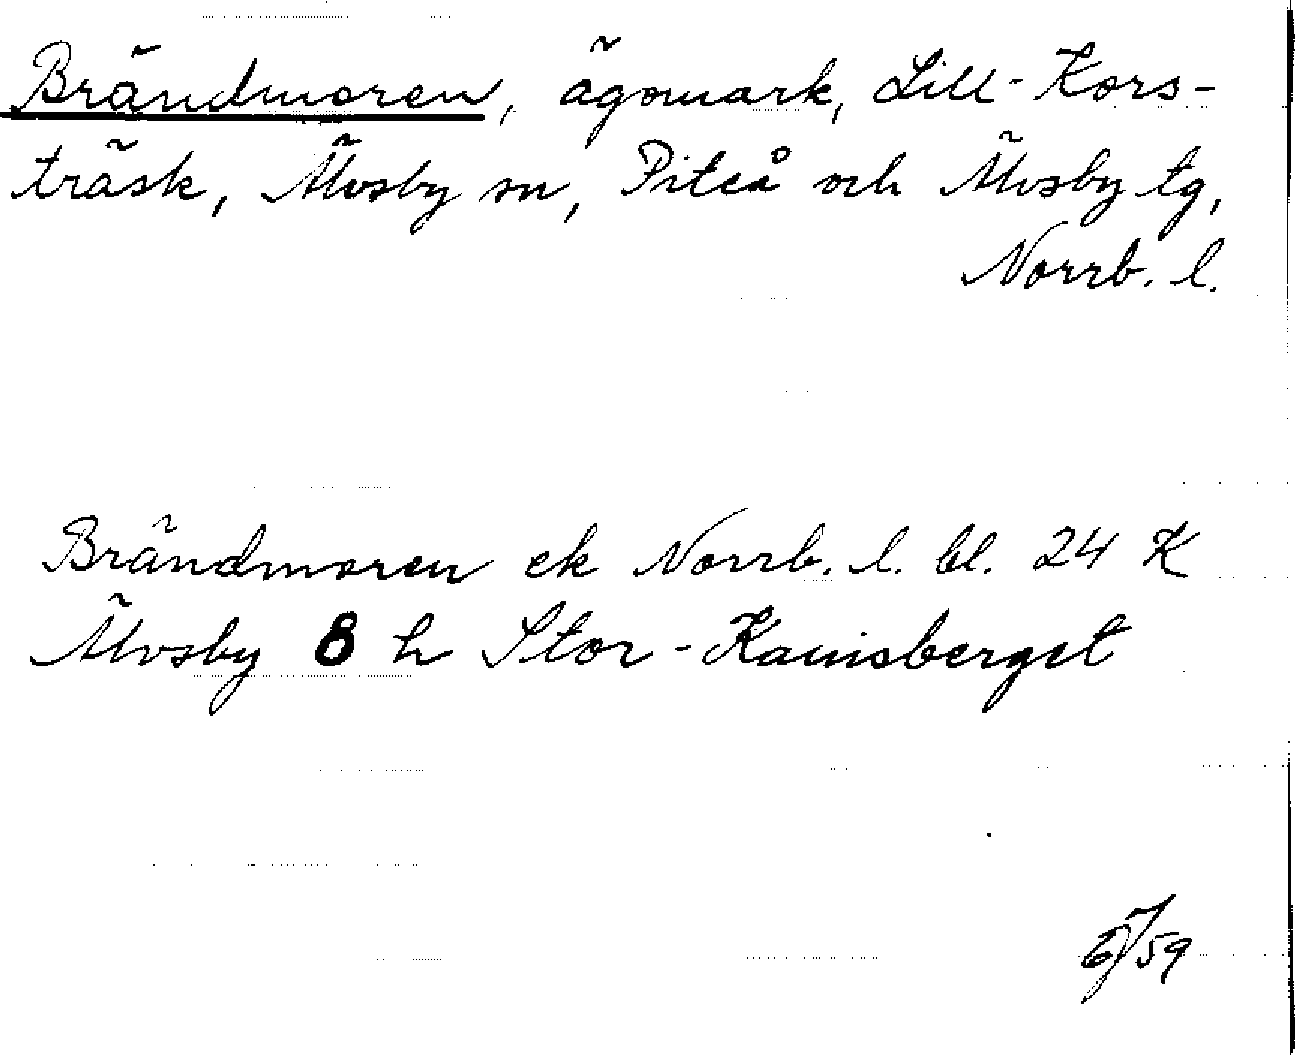 Brändmoren, ägomark, Lill-Kors-
träsk, Älvsby sn, Piteå och Älvsby tg,
Norrb. l.
Brändmoren ek Norrb. l. bl. 24 K
Älvsby 8 h Stor-Kamisberget
6/7 59